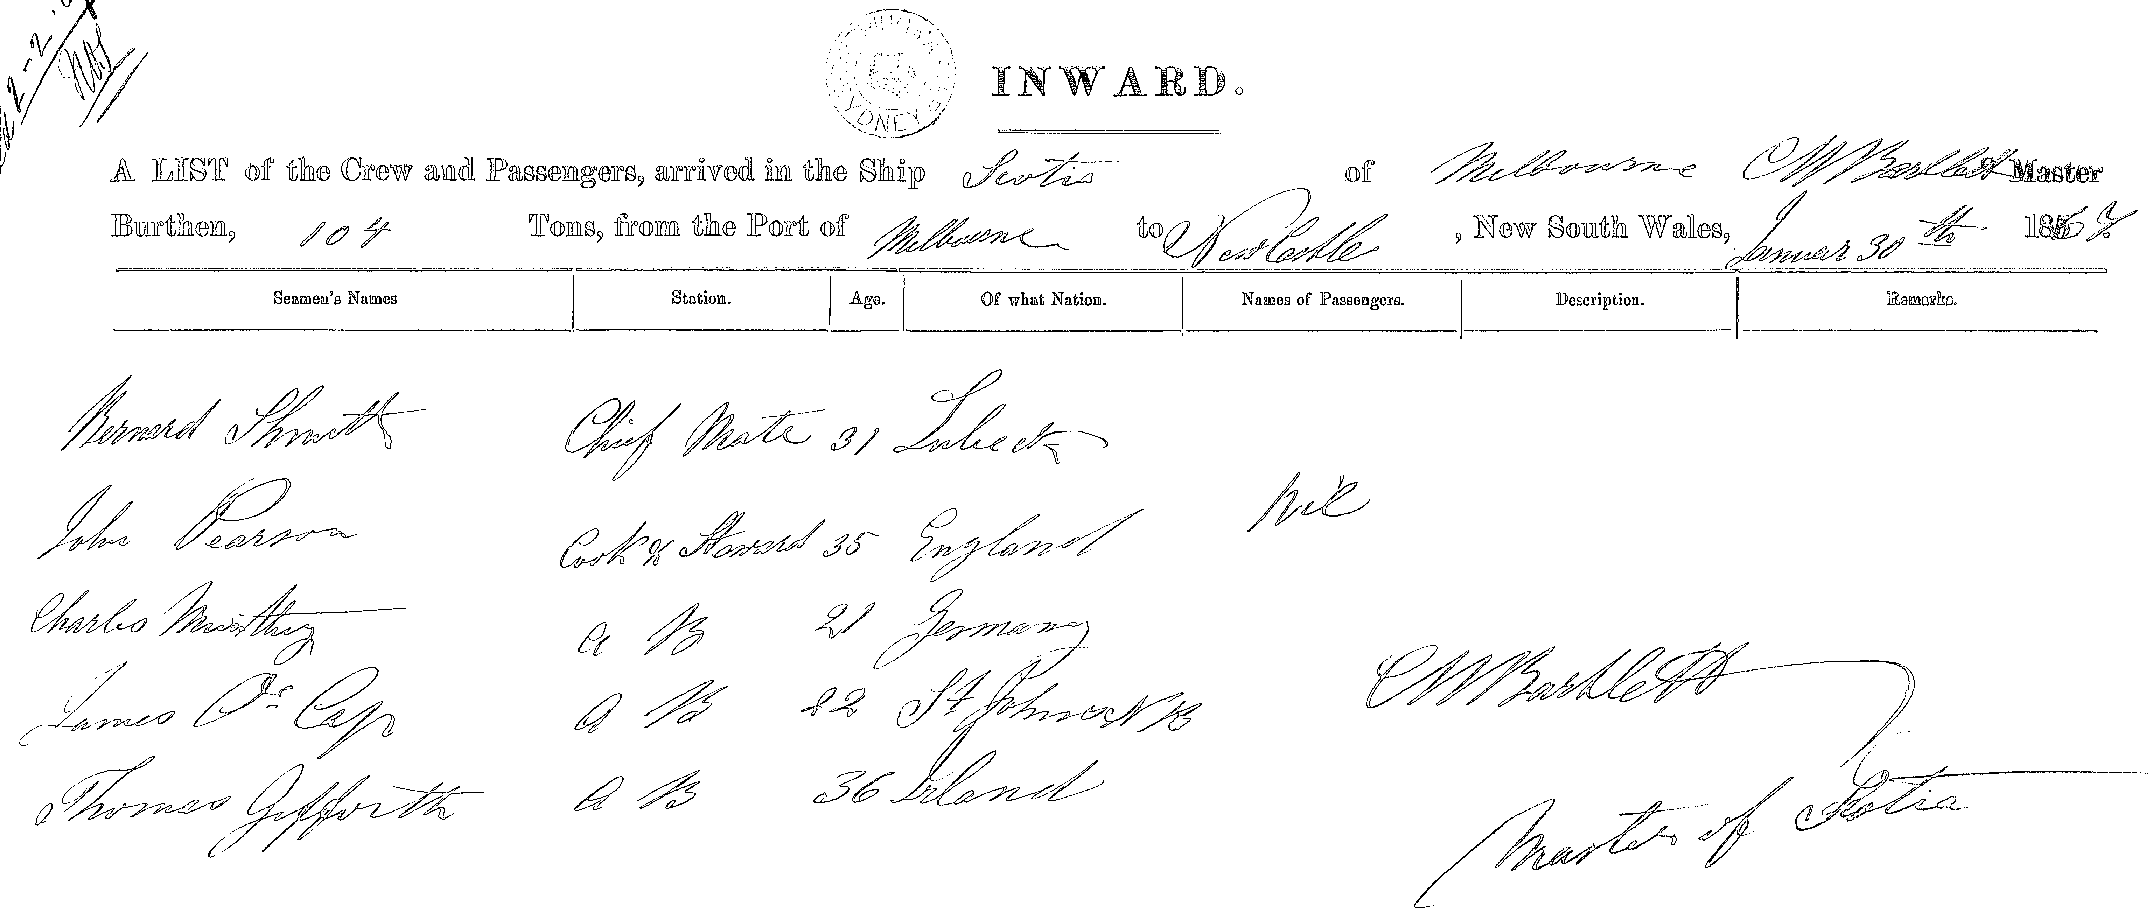 INWARD.
A LIST of the Crew and Passengers, arrived in the Ship Scotia of Melbourne C W Bartlett Master
Burthen, 104 Tons, from the Port of Melbourne to NewCastle, New South Wales, Januar 30th 1867
Seamen's Names Station. Age. Of what Nation. Names of Passengers. Description. Remarks.
Bernard Shmitt Chief Mate 31 Lubeck
John Pearson Cook & Steward 35 England Nil
Charles A B 21 Germany
James A B 22 St Johns N B
Thomas Gefforth A B 36 Irland
C W Bartlett
Master of Scotia